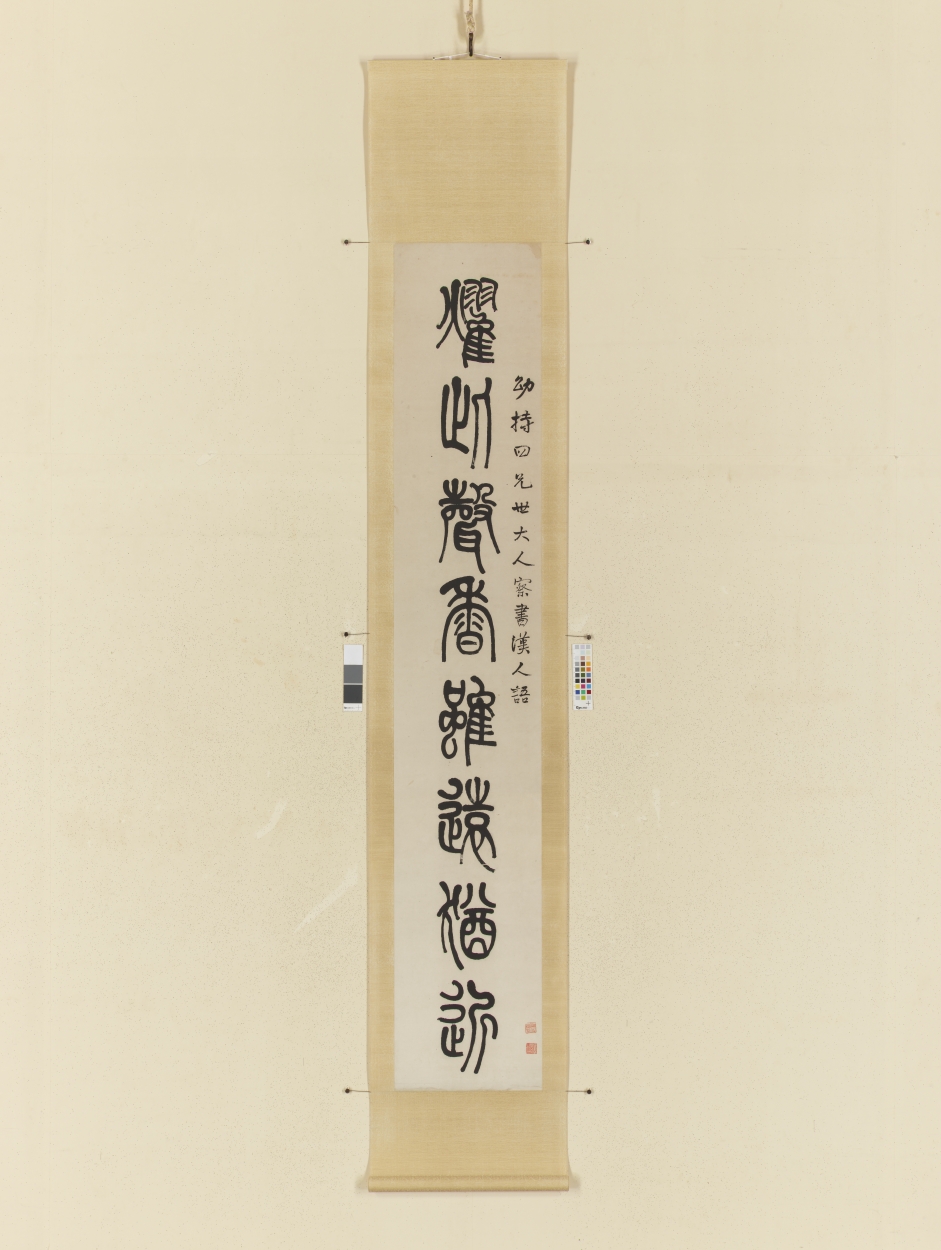 幼持四兄世大人察書漢人語
燿此聲香雖遠猶近